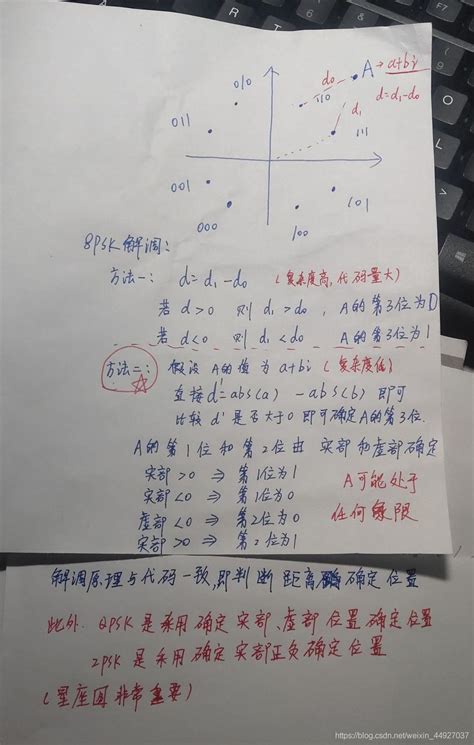 A → a+bi
010
d0
110
d=d1-d0
d1
011
111
001
101
000
100
8PSK解调:
方法一: d=d1-d0 (复杂度高,代码量大)
若 d>0 则 d1>d0, A的第3位为0
若 d<0 则 d1<d0 A的第3位为1
方法二: 假设 A的值为 a+bi (复杂度低)
直接 d'=abs(a) -abs(b) 即可
比较 d' 是否大于0 即可确定A的第3位.
A的第1位和第2位由 实部和虚部确定
实部>0 ⇒ 第1位为1
实部<0 ⇒ 第1位为0
A可能处于
虚部<0 ⇒ 第2位为0
任何象限
实部>0 ⇒ 第2位为1
解调原理与代码一致,即判断距离确定位置
此外. QPSK是采用确定实部、虚部位置确定位置
2PSK是采用确定实部正负确定位置
(星座图非常重要)
https://blog.csdn.net/weixin_44927037